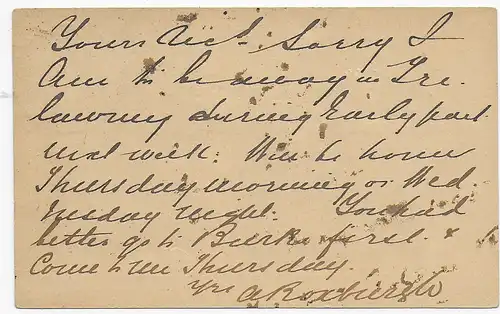 Yours rec'd. Sorry I
am to be away in Tre-
lawny during early part
next week. Will be home
Thursday morning or Wed-
nesday night. You had
better go to Burke first &
come to me Thursday.
Yrs
A Roxburgh